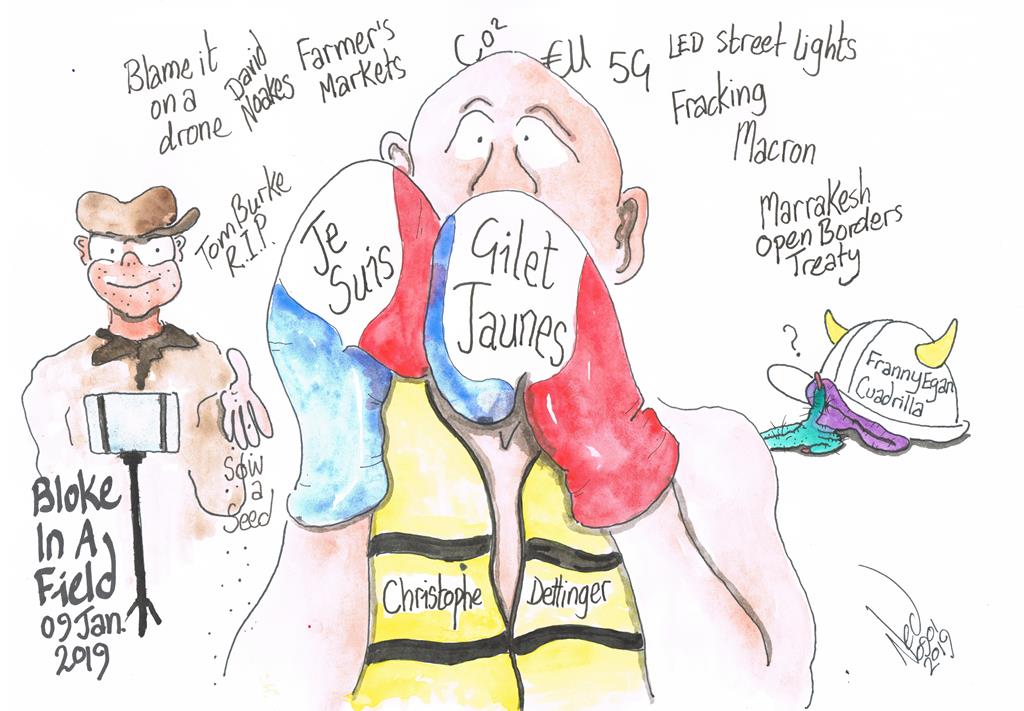 Blame it
on a
drone
David
Noakes
Farmer's
Markets
CO²
€U
5G
LED street lights
Fracking
Macron
Marrakesh
Open Borders
Treaty
Tom Burke
R.I.P.
Je
Suis
Gilet
Jaunes
?
Franny Egan
Cuadrilla
Sow
a
Seed
Bloke
In A
Field
09 Jan.
2019
Christophe
Dettinger
2019